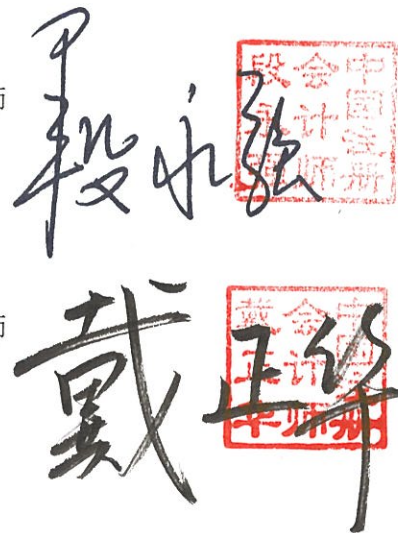 段永强
中国注册
会计师
段永强
戴正华
中国注册
会计师
戴正华